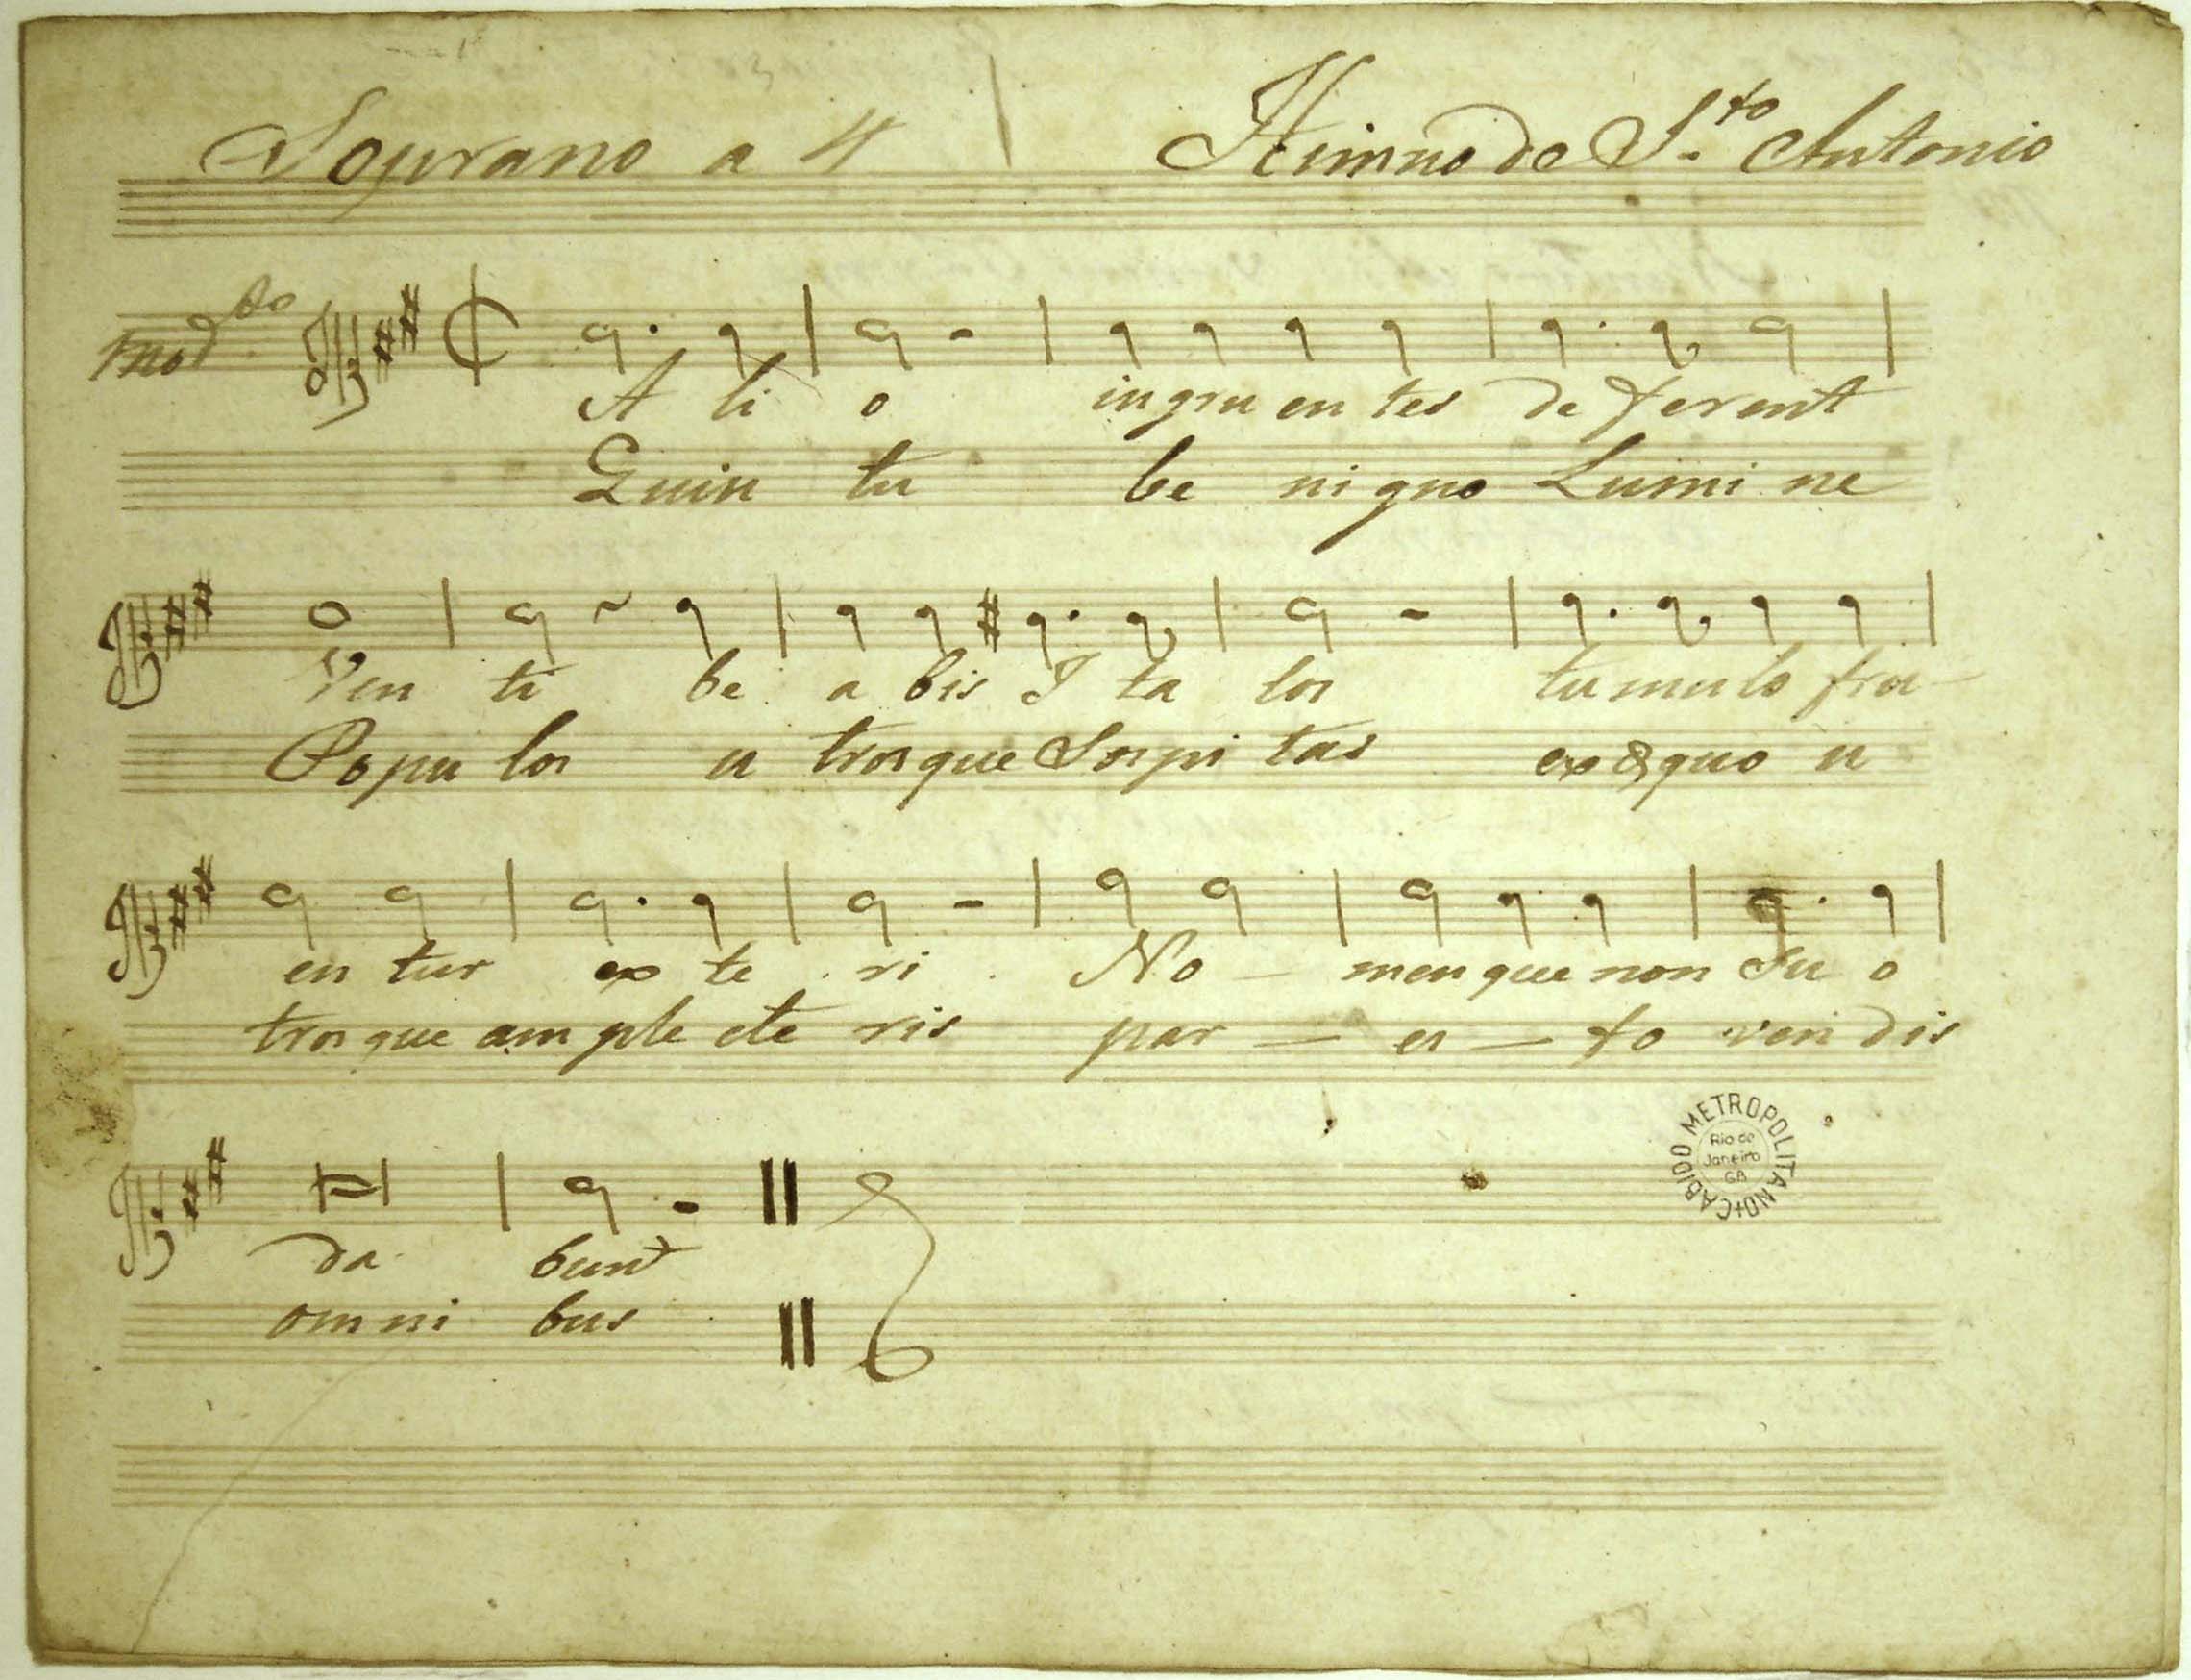 Soprano a 4 Himno de S.to Antonio
Mod.to
A li o ingru en tes de ferent
Quin tu be nigno Lumi ne
Ven ti be a bis I ta los tumulo fru-
Popu los u trosque Sospi tas ex æquo u
en tur ex te ri No - menque non Su o
trosque am ple cte ris par - en - to ven dis
da bunt
omni bus
CABIDO METROPOLITANO
Rio de
Janeiro
GB